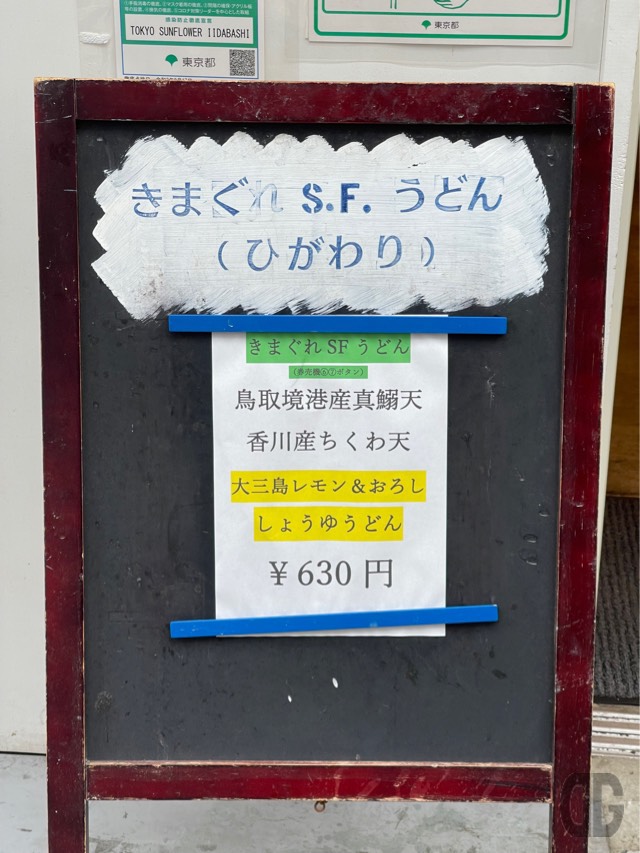 感染防止徹底宣言
TOKYO SUNFLOWER IIDABASHI
東京都
東京都
きまぐれ S.F. うどん
(ひがわり)
きまぐれSFうどん
(券売機⑥⑦ボタン)
鳥取境港産真鰯天
香川産ちくわ天
大三島レモン&おろし
しょうゆうどん
¥630円